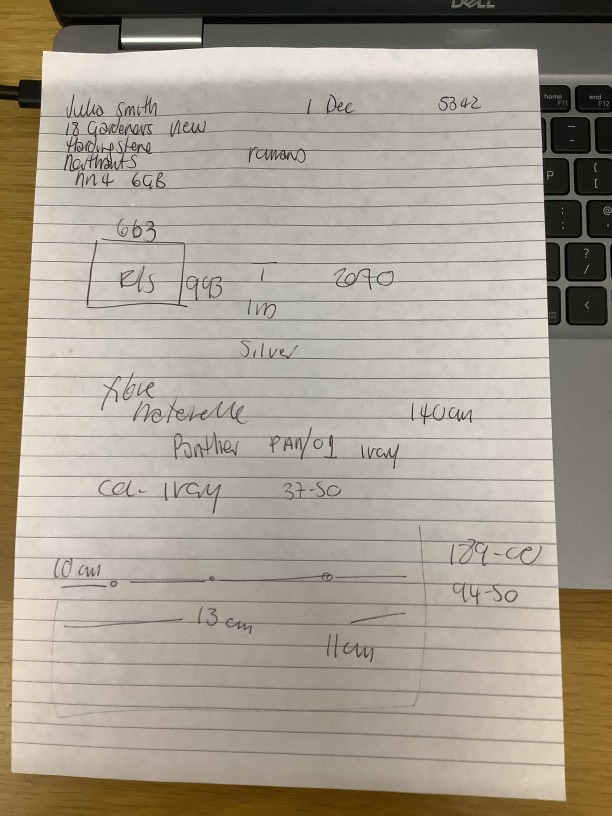 Julia Smith 1 Dec 5342
18 Gardeners View
Hardingstone
Northants romans
NN4 6GB
663
R/S 993 1 2070
Silver
fibre
naterelle 140cm
Panther PAN/01 Ivory
Col- Ivory 37-50
189-00
10cm
94-50
13 cm
11cm
DELL
home
F11
end
F12
P
{
[
:
;
@
?
/
<